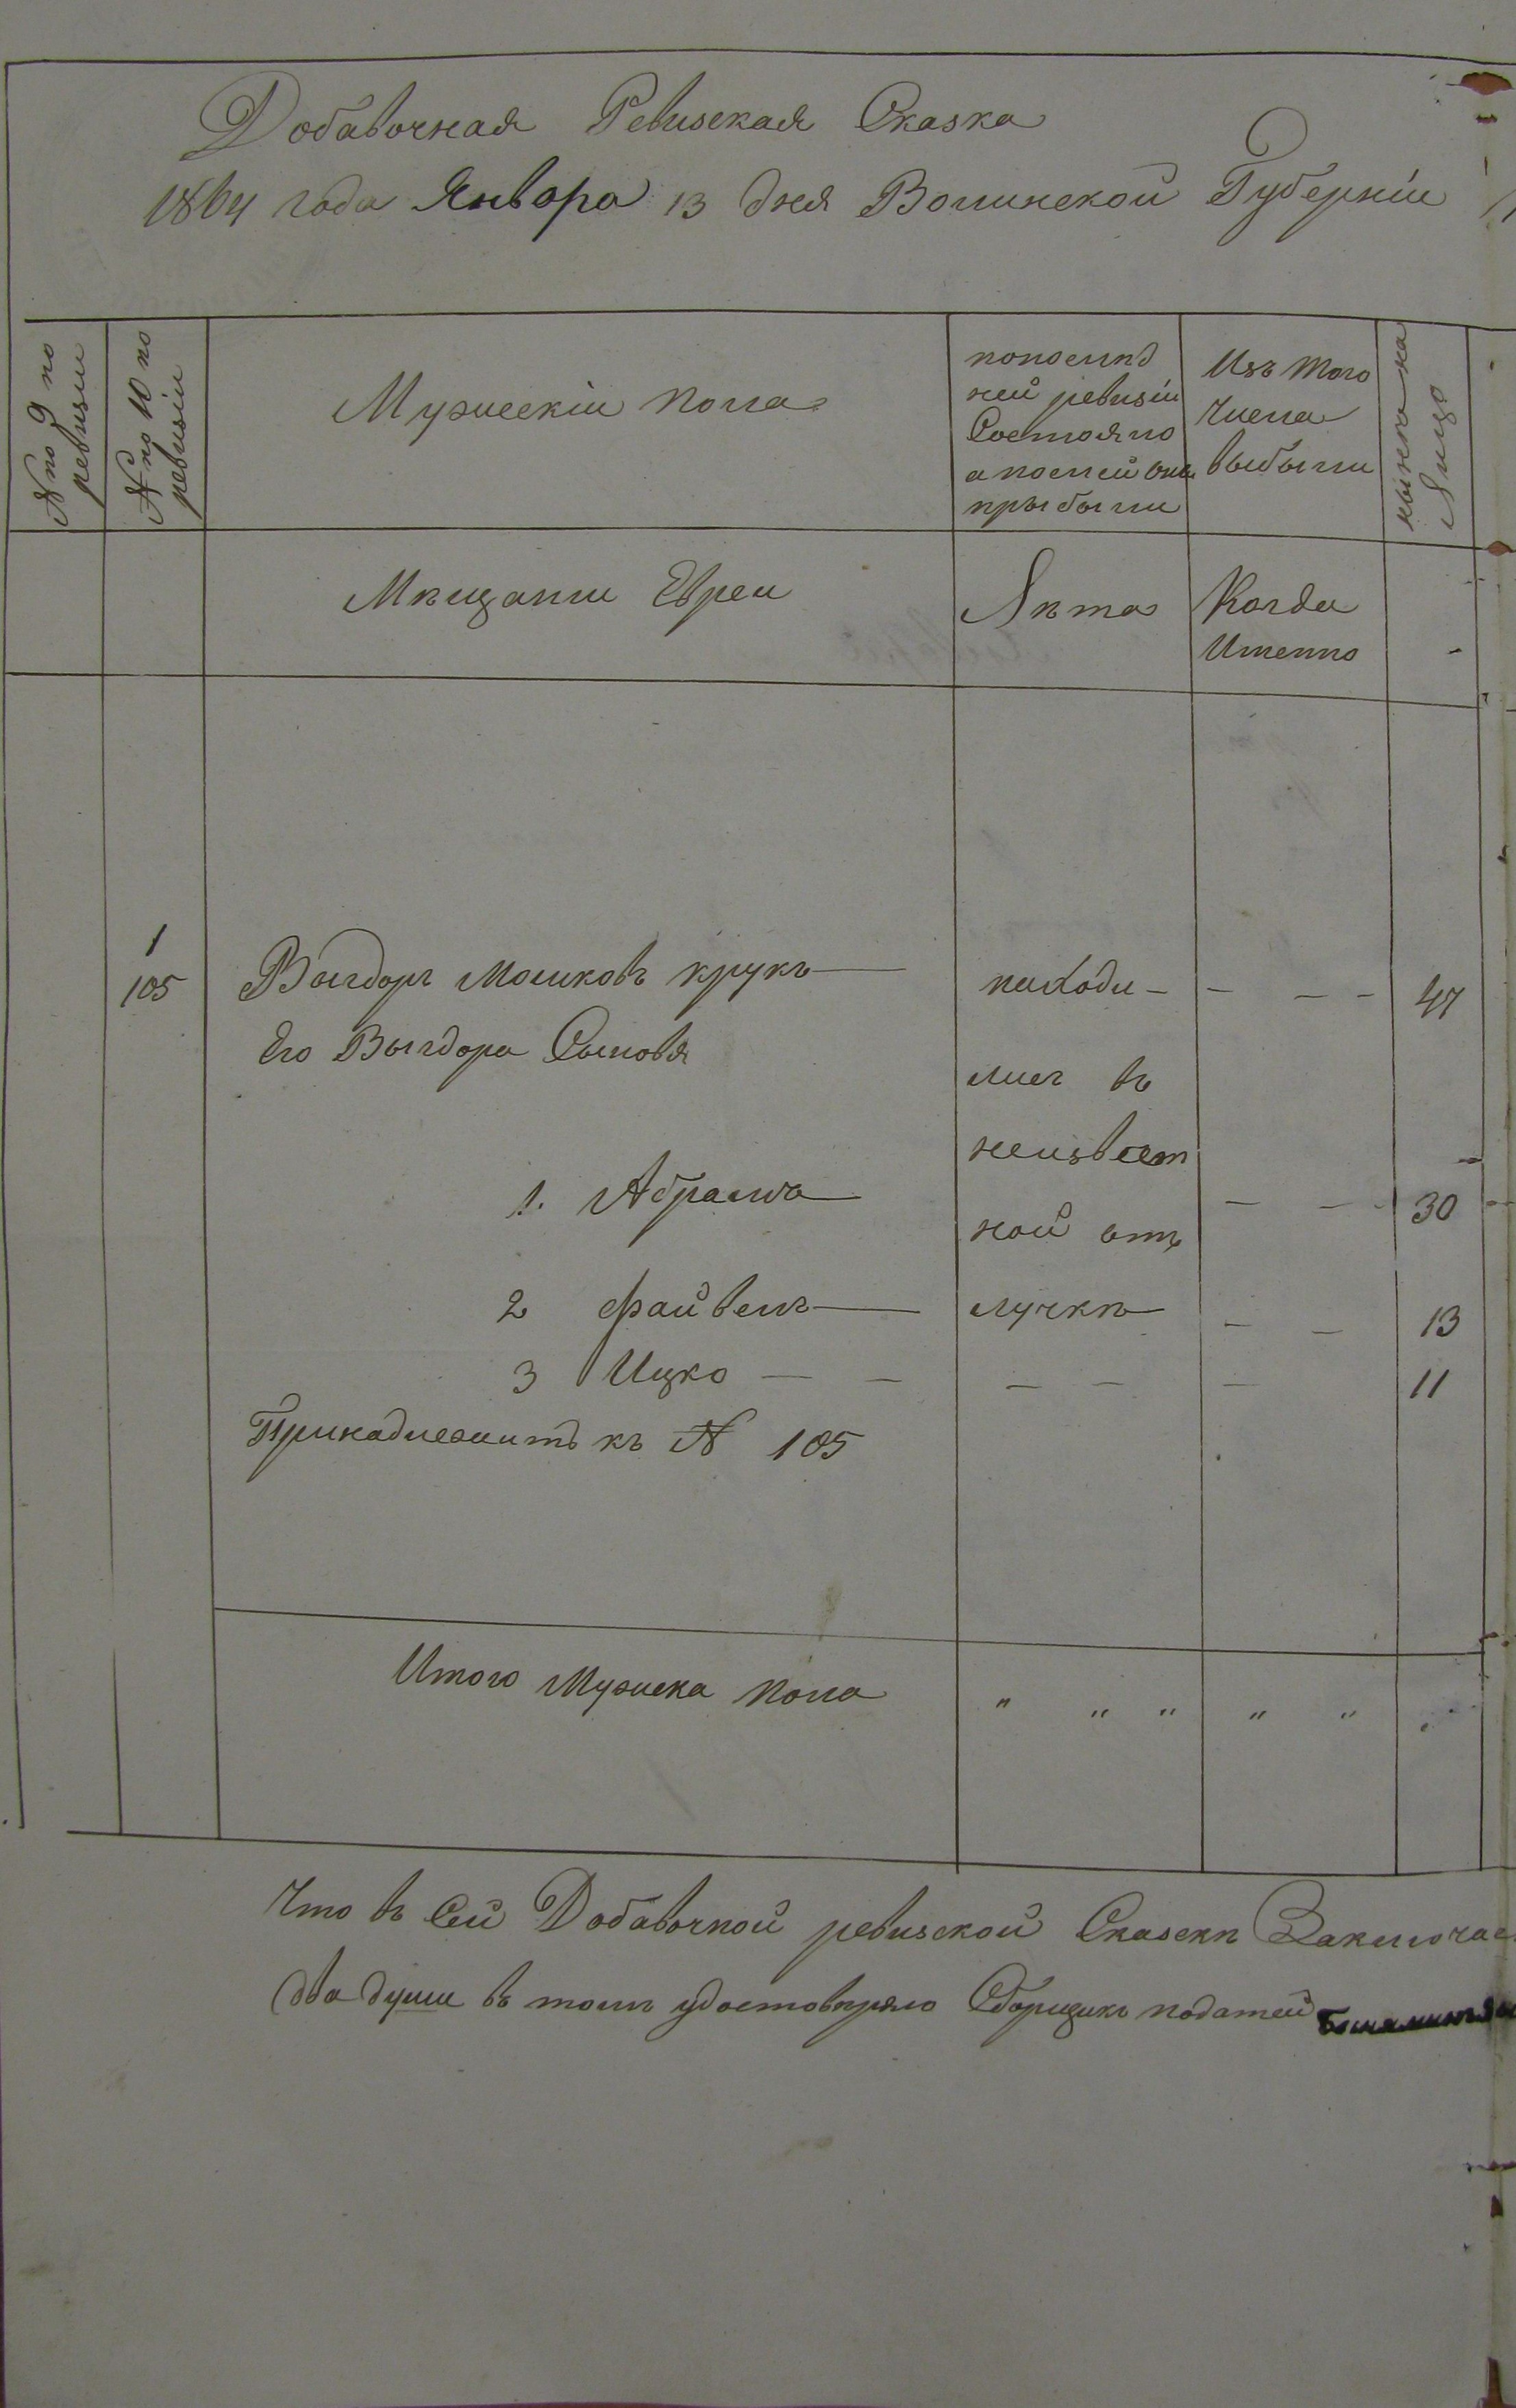 Добавочная Ревизская Сказка
1864 года Января 13 дня Волинской Губернiи
№ по 9 по ревизiи
№ по 10 по ревизiи
Мужескiй пола
попослѣд
ней ревизiи
Состояло
а послей она
прыбыли
Изъ того
числа
выбыли
нынѣ на
Лицо
Мѣщани Евреи
Лѣта
Когда
Именно
1
105
Выгдоръ Мошковъ крукъ
находи
47
Его Выгдора Сыновя
лисъ въ
неизвест
1. Абрамъ
30
ной отъ
2 Файвель
лучкѣ
13
3 Ицко
11
Принадлежитъ къ № 105
Итого Мужска пола
Что въ Сей Добавочной ревизской Сказкѣ Заключае
два души въ томъ удостовѣряю Сборщикъ податей